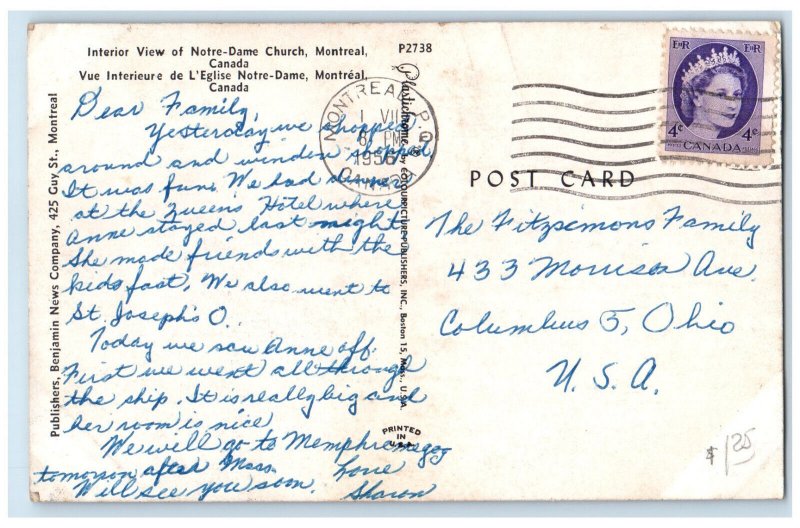 Interior View of Notre-Dame Church, Montreal,
Canada
Vue Interieure de L'Eglise Notre-Dame, Montréal,
Canada
P2738
Dear Family,
Yesterday we shopped
around and window shopped.
It was fun. We had dinner
at the Queens Hotel where
Anne stayed last night
She made friends with the
kids fast. We also went to
St. Joseph's O.
Today we saw Anne off.
First we went all through
the ship. It is really big and
her room is nice
We will go to Memphremagog
tomorrow after Mass.
Will see you soon.
Love
Sharon
Publishers, Benjamin News Company, 425 Guy St., Montreal
Plastichrome by COLOURPICTURE PUBLISHERS, INC., Boston 15, Mass., U.S.A.
PRINTED
IN
U.S.A.
MONTREAL P.Q.
1 VII
PM
1956
CANADA
E II R
E II R
4c
4c
CANADA
POST CARD
The Fitzsimons Family
433 Morrison Ave.
Columbus 5, Ohio
U.S.A.
$ 1.25